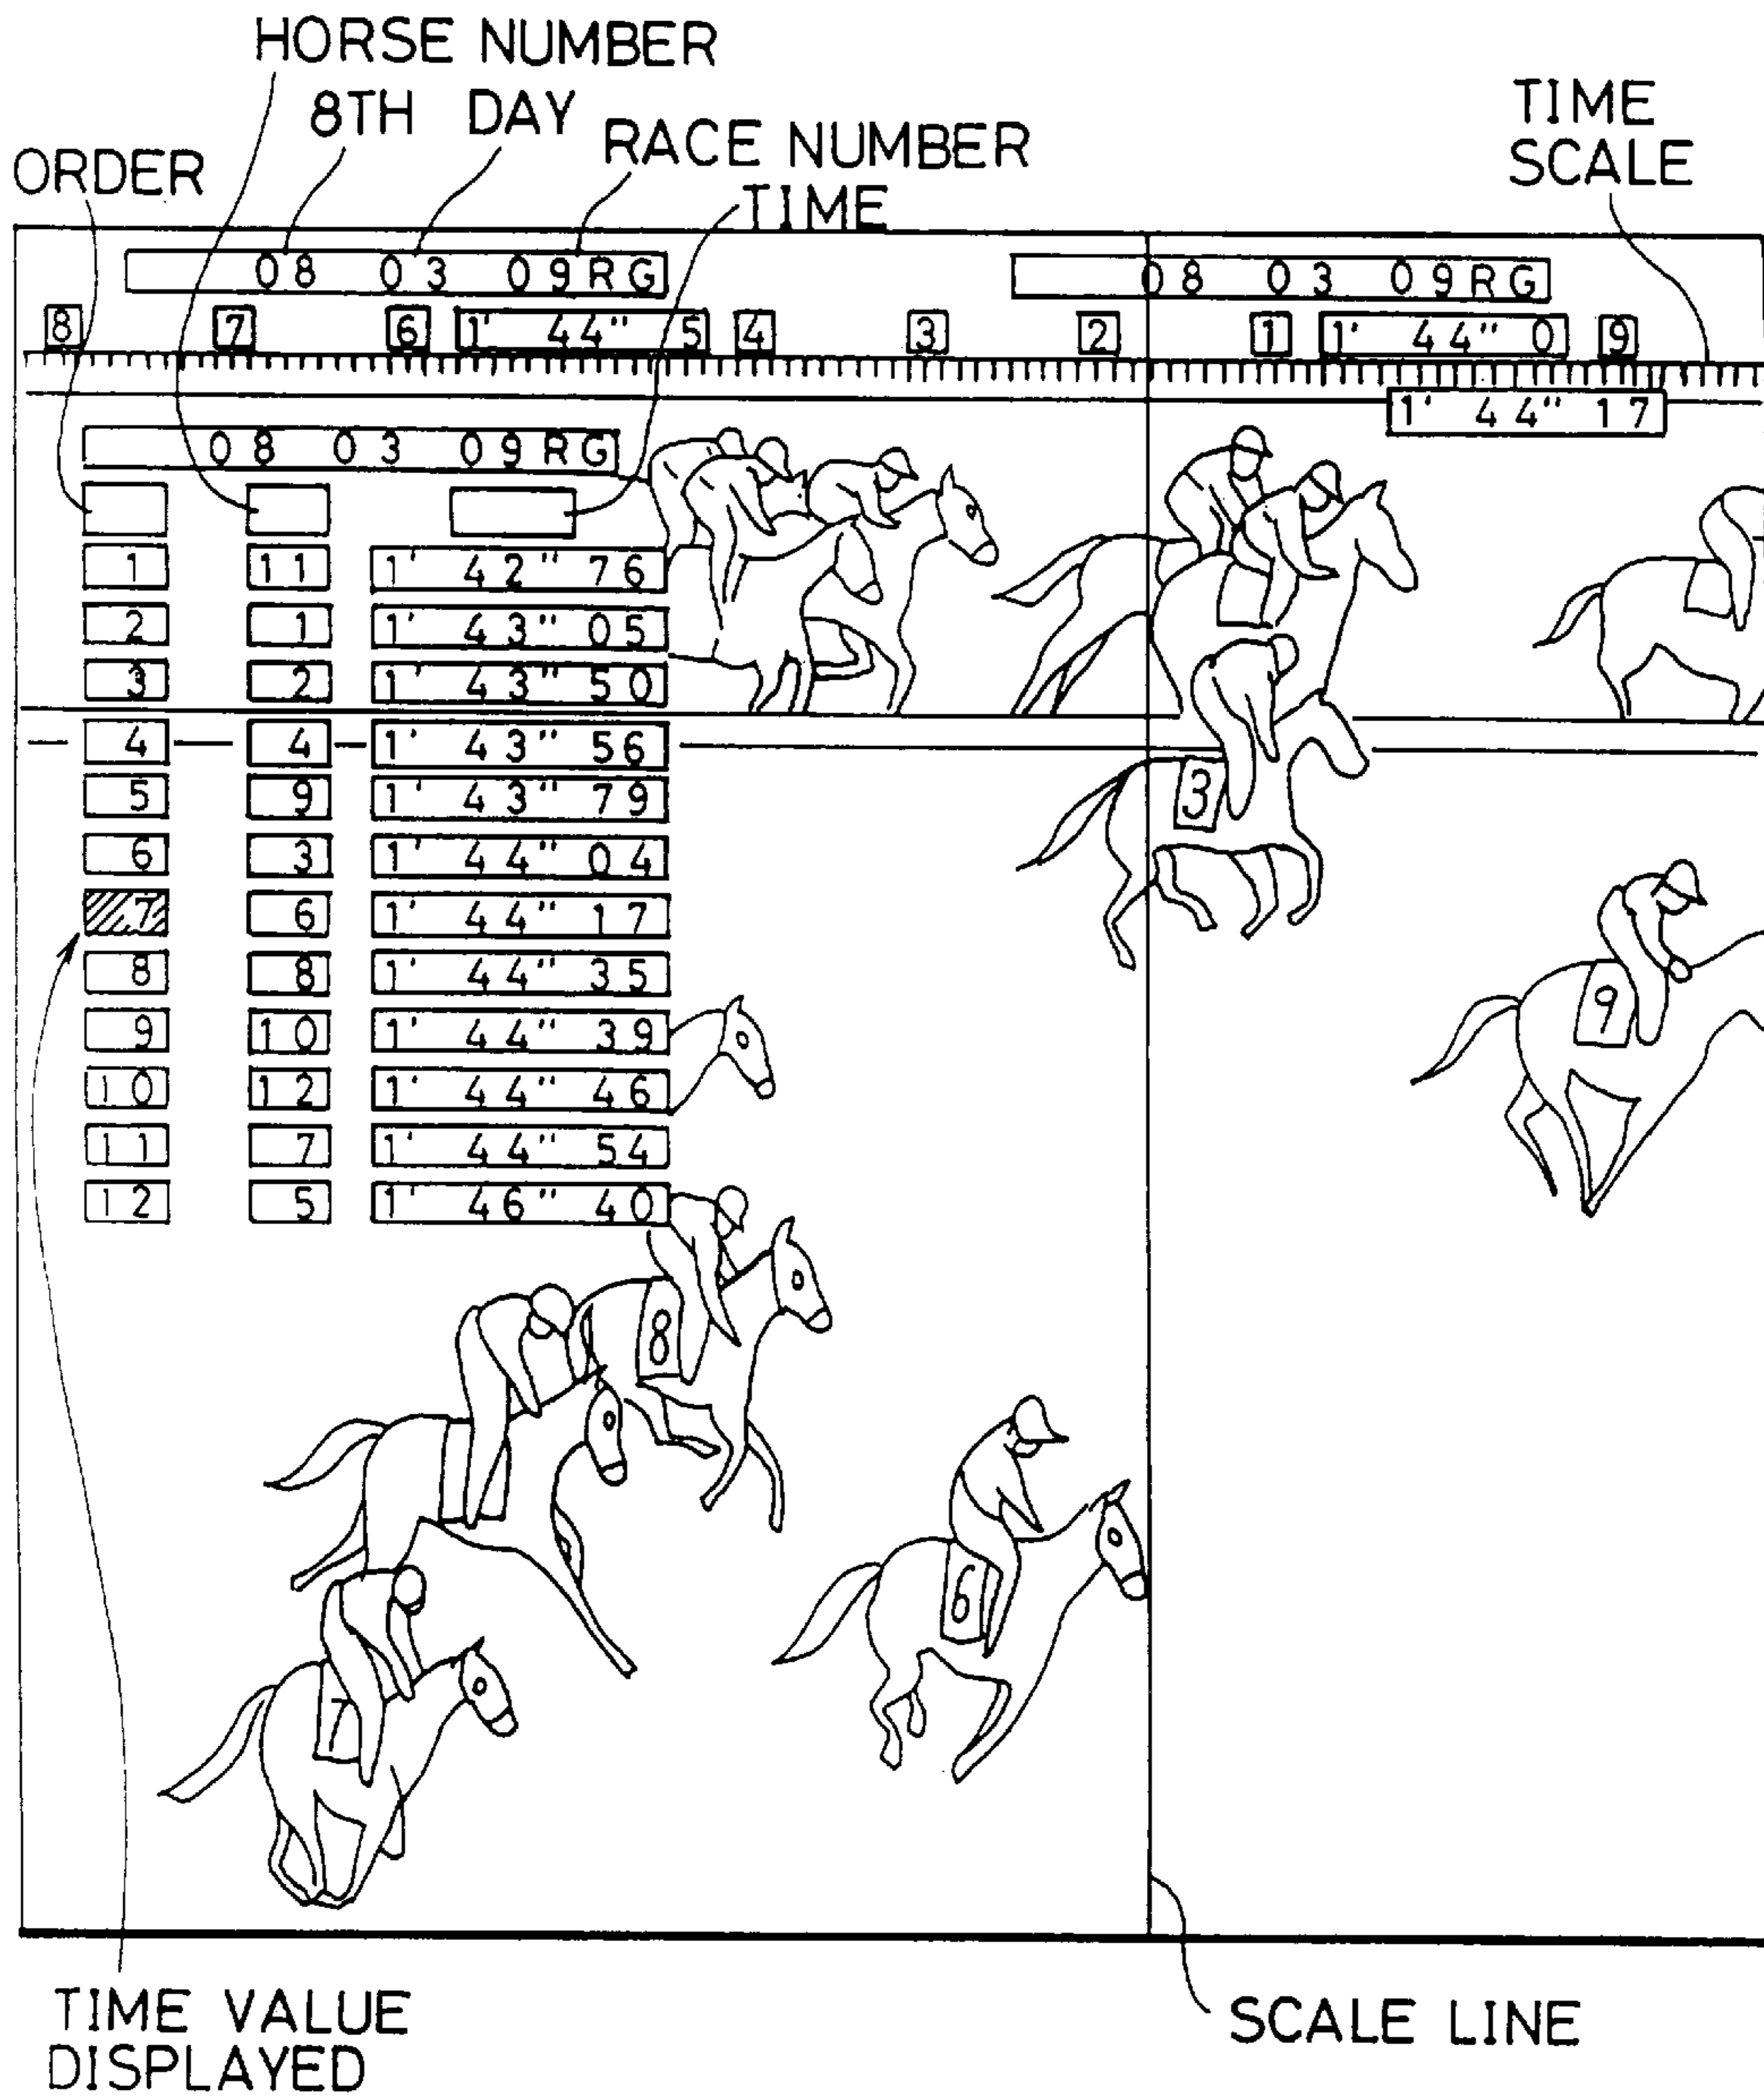 HORSE NUMBER
8TH DAY
RACE NUMBER
TIME
ORDER
TIME
SCALE
08 03 09RG
08 03 09RG
8 7 6 1' 44" 5 4 3 2 1 1' 44" 0 9
1' 44" 17
08 03 09RG
1 11 1' 42" 76
2 1 1' 43" 05
3 2 1' 43" 50
4 4 1' 43" 56
5 9 1' 43" 79
6 3 1' 44" 04
7 6 1' 44" 17
8 8 1' 44" 35
9 10 1' 44" 39
10 12 1' 44" 46
11 7 1' 44" 54
12 5 1' 46" 40
3
9
8
6
7
TIME VALUE
DISPLAYED
SCALE LINE